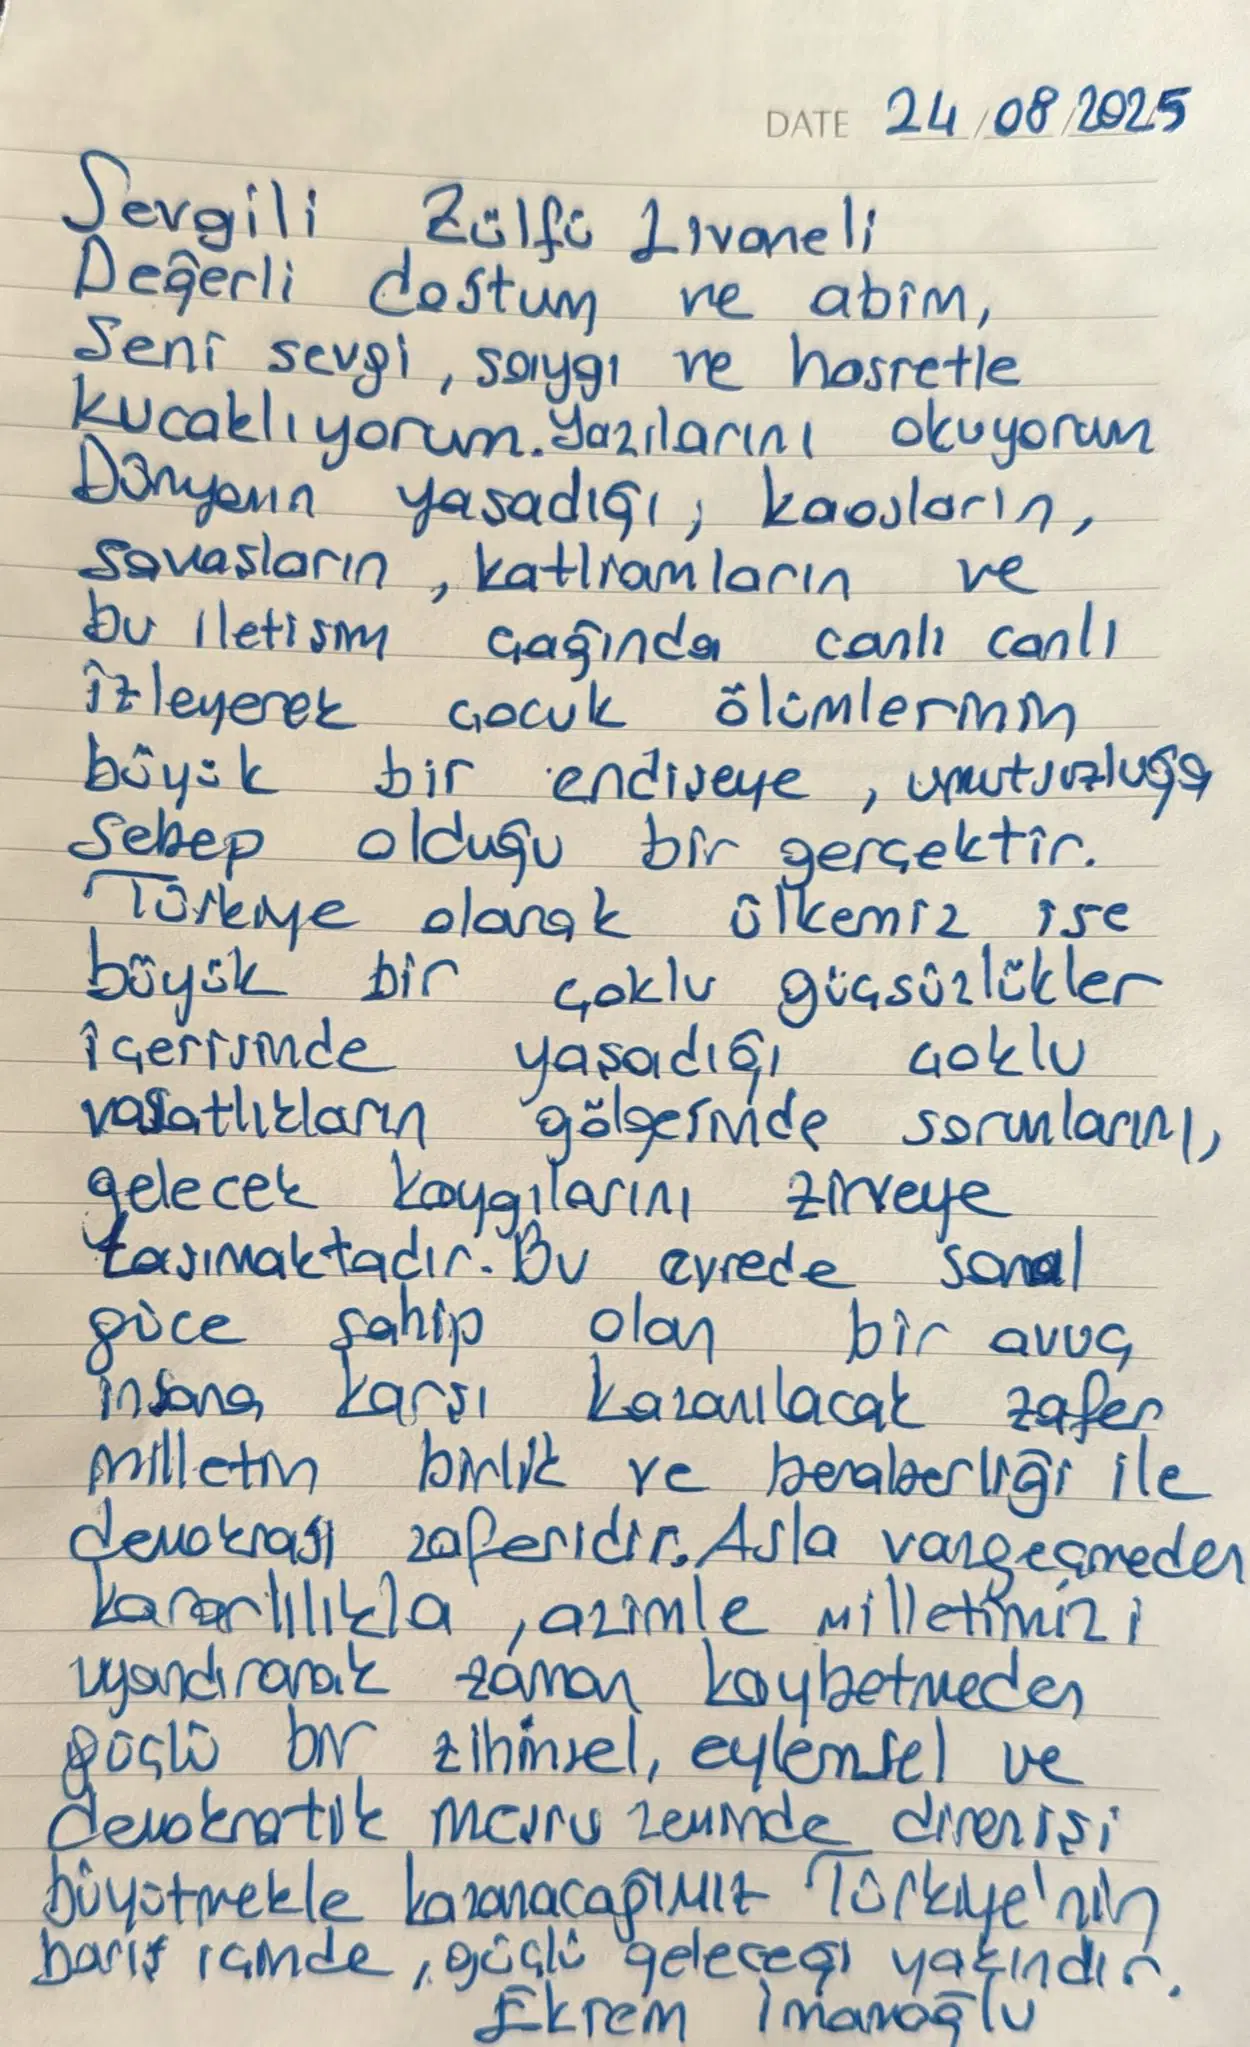 DATE 24/08/2025
Sevgili Zülfü Livaneli
Değerli dostum ve abim,
Seni sevgi, saygı ve hasretle
kucaklıyorum. Yazılarını okuyorum
Dünyanın yaşadığı, kaosların,
savaşların, katliamların ve
bu iletişim çağında canlı canlı
izleyerek çocuk ölümlerinin
büyük bir endişeye, umutsuzluğa
sebep olduğu bir gerçektir.
Türkiye olarak ülkemiz ise
büyük bir çoklu güçsüzlükler
içerisinde yaşadığı çoklu
vasatlıkların gölgesinde sorunlarını,
gelecek kaygılarını zirveye
taşımaktadır. Bu evrede sanal
güce sahip olan bir avuç
insana karşı kazanılacak zafer
milletin birlik ve beraberliği ile
demokrasi zaferidir. Asla vazgeçmeden
kararlılıkla, azimle milletimizi
uyandırarak zaman kaybetmeden
güçlü bir zihinsel, eylemsel ve
demokratik meşru zeminde direnişi
büyütmekle kazanacağımız Türkiye'nin
barış içinde, güçlü geleceği yakındır.
Ekrem İmamoğlu